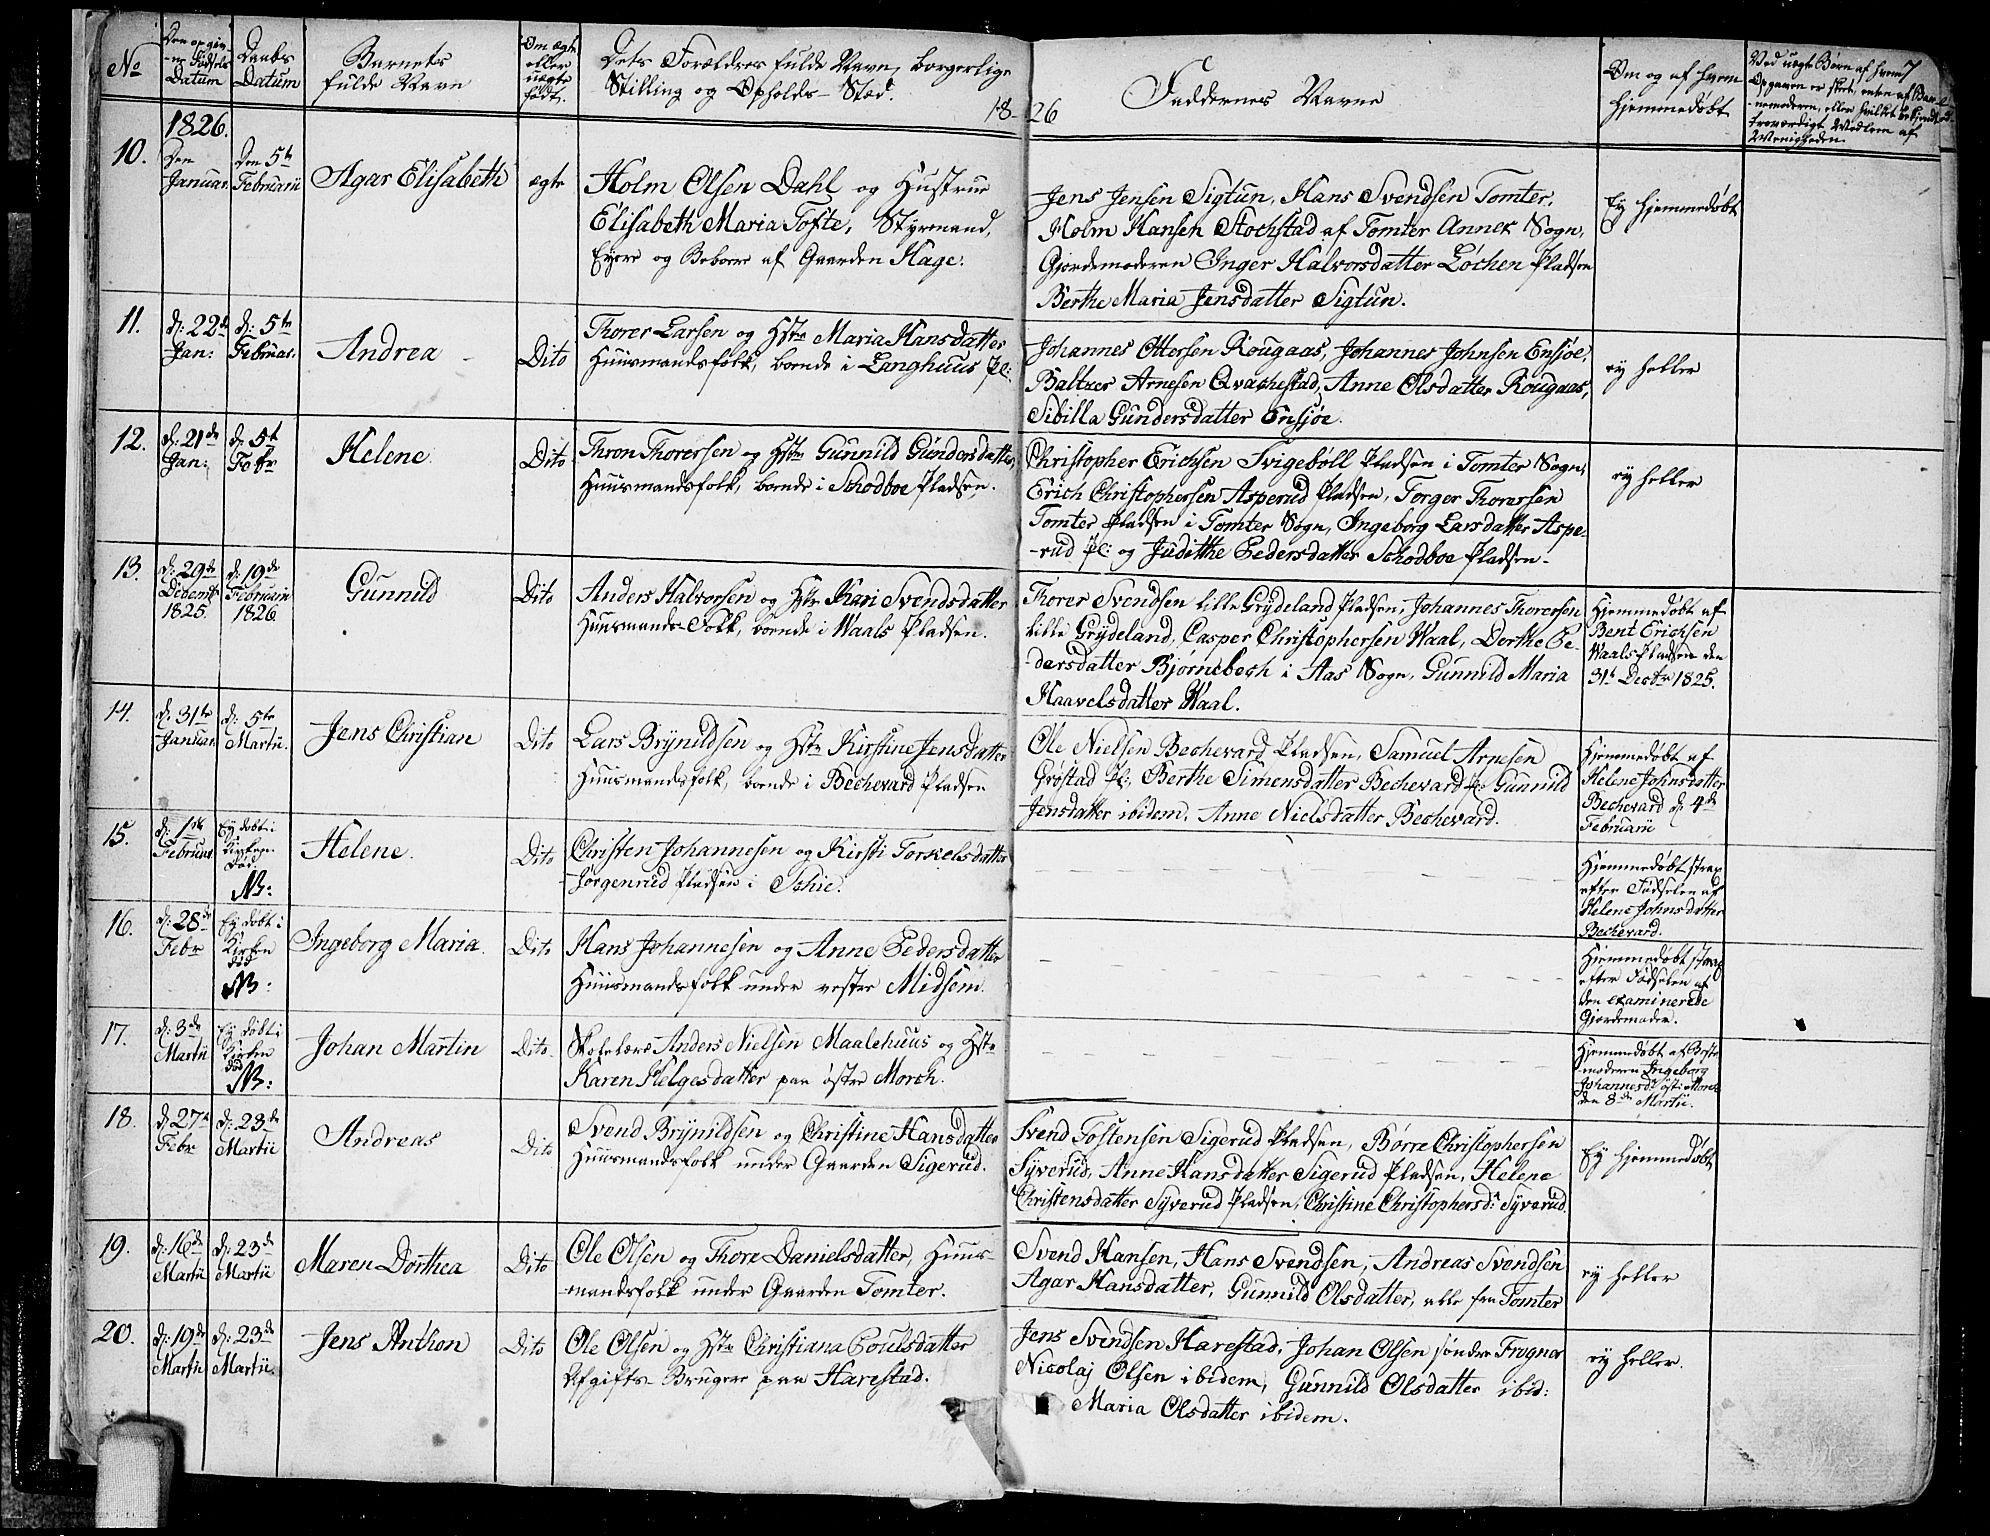 No
Den opgivne Fødsels Datum
Daabs Datum
Barnets fulde Navn
Om ægte eller uægte født.
Dets Forældres fulde Navn, borgerlige Stilling og Opholds-Sted.
18-26
Faddernes Navne
Om og af hvem hjemmedøbt
7
Ved uægte Børn af hvem Opgaven er skeet, enten af Barnemoderen, eller hvilket bekjendt og troværdigt Medlem af Menigheden.
1826.
10.
Den
Januar.
Den 5te
Februarii
Agar Elisabeth
ægte
Holm Olsen Dahl og Hustrue
Elisabeth Maria Tofte, Styrmand,
Eyere og Beboere af Gaarden Hage.
Jens Jensen Sigtun, Hans Svendsen Tomter,
Holm Hansen Stochstad af Tomter Annex Sogn,
Gjordemoderen Inger Halvorsdatter Løchen Pladsen
Berthe Maria Jensdatter Sigtun.
Ey hjemmedøbt
11.
d: 22de
Jan:
d: 5te
Februar.
Andrea
Dito
Thorer Larsen og Hstr Maria Hansdatter
Huusmandsfolk, boende i Langhuus Pl:
Johannes Ottersen Rougaas, Johannes Johnsen Ensjøe,
Baltzer Arnesen Qvachestad, Anne Olsdatter Rougaas,
Sibilla Gundersdatter Ensjøe.
ey heller
12.
d: 21de
Jan:
d: 5t
Febr
Helene.
Dito
Thron Thorersen og Hstr Gunnild Gundersdatter,
Huusmandsfolk, boende i Schodboe Pladsen.
Christopher Erichsen Svigeboll Pladsen i Tomter Sogn,
Erich Christophersen Asperud Pladsen, Torger Thorersen
Tomter Pladsen i Tomter Sogn, Ingeborg Larsdatter Aspe-
-rud Pl: og Judithe Pedersdatter Schodboe Pladsen.
ey heller
13.
d: 29de
Decemb
1825.
d: 19de
Februarii
1826.
Gunnild
Dito
Anders Halvorsen og Hstr Kari Svendsdatter
Huusmands-Folk, boende i Waals Pladsen.
Thorer Svendsen lille Grydeland Pladsen, Johannes Thorersen
lille Grydeland, Casper Christophersen Waal, Dorthe Pe-
-dersdatter Bjørnebech i Aas Sogn, Gunnild Maria
Haavelsdatter Waal.
Hjemmedøbt af
Bent Erichsen
Waals Pladsen den
31t Decbr 1825.
14.
d: 31te
Januar
d: 5te
Martii.
Jens Christian
Dito
Lars Brynildsen og Hstr Kirstine Jensdatter
Huusmandsfolk, boende i Bechevard Pladsen
Ole Nielsen Bechevard Pladsen, Samuel Arnesen
Grøstad Pl:, Berthe Simensdatter Bechevard Pl: Gunnild
Jensdatter ibidem, Anne Nielsdatter Bechevard.
Hjemmedøbt af
Helene Johnsdatter
Bechevard d: 4de
Februarii
15.
d: 1ste
Februar
Ey døbt i
Kirken.
død.
NB:
Helene.
Dito
Christen Johannesen og Kirsti Torkelsdatter
Jørgenrud Pladsen i Schie.
Hjemmedøbt strax
efter Fødselen af
Helene Johnsdatter
Bechevard.
16.
d: 28de
Febr
Ey døbt i
Kirken
død
NB:
Ingeborg Maria.
Dito
Hans Johannesen og Anne Pedersdatter
Huusmandsfolk under vestre Midsem.
Hjemmedøbt strax
efter Fødselen af
den examinerede
Gjordemoder.
17.
d: 3de
Martii
Ey døbt i
Kirken
død
NB:
Johan Martin
Dito.
Skolelærer Anders Nielsen Maalehuus og Hstr
Karen Helgesdatter paa østre Morch.
Hjemmedøbt af Beste-
-moderen Ingeborg
Johannesdr østre Morch
den 8de Martii.
18.
d: 27de
Febr
d: 23de
Martii
Andreas
Dito
Svend Brynildsen og Christine Hansdatter
Huusmandsfolk under Gaarden Sigerud.
Svend Tostensen Sigerud Pladsen, Børre Christophersen
Syverud, Anne Hansdatter Sigerud Pladsen, Helene
Christensdatter Syverud Pladsen, Christine Christophersdr Syverud
Ey hjemmedøbt
19.
d: 16de
Martii
d: 23de
Martii
Maren Dorthea
Dito
Ole Olsen og Thore Danielsdatter, Huus-
-mandsfolk under Gaarden Tomter.
Svend Hansen, Hans Svendsen, Andreas Svendsen
Agar Hansdatter, Gunnild Olsdatter, alle fra Tomter
ey heller
20.
d: 19de
Martii
d: 23de
Martii.
Jens Anthon
Dito
Ole Olsen og Hstr Christiana Poulsdatter
Afgifts-Bruger paa Harestad.
Jens Svendsen Harestad, Johan Olsen søndre Frogner
Nicolaj Olsen ibidem, Gunnild Olsdatter ibid:
Maria Olsdatter ibidem.
ey heller.